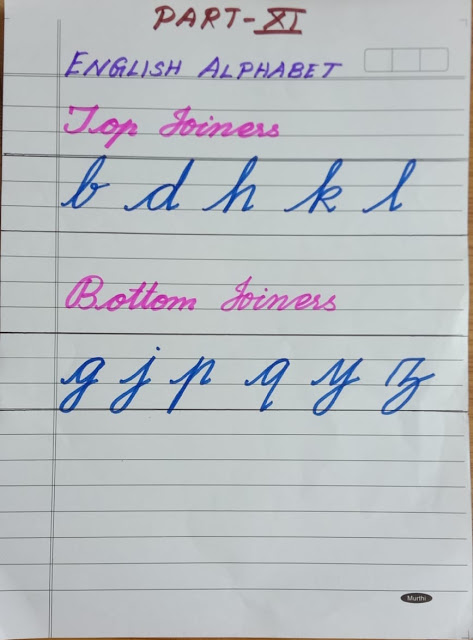 PART-XI
ENGLISH ALPHABET
Top Joiners
b d h k l
Bottom Joiners
g j p q y z
Murthi